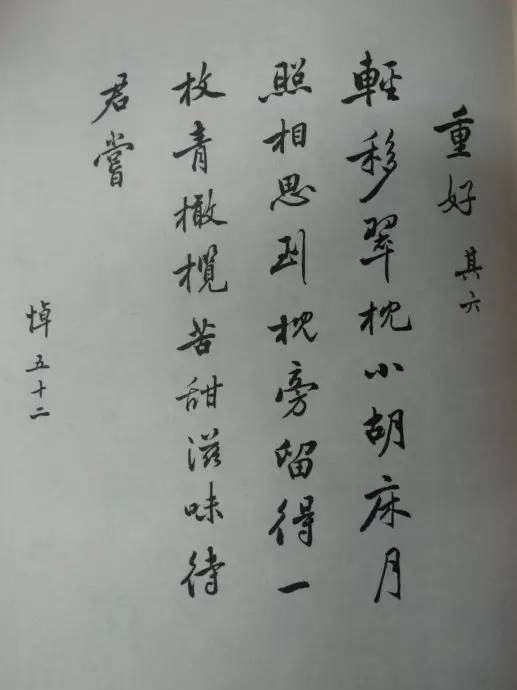 重好 其六
輕移翠枕小胡床月
照相思到枕旁留得一
枚青橄欖苦甜滋味待
君嘗
悼五十二